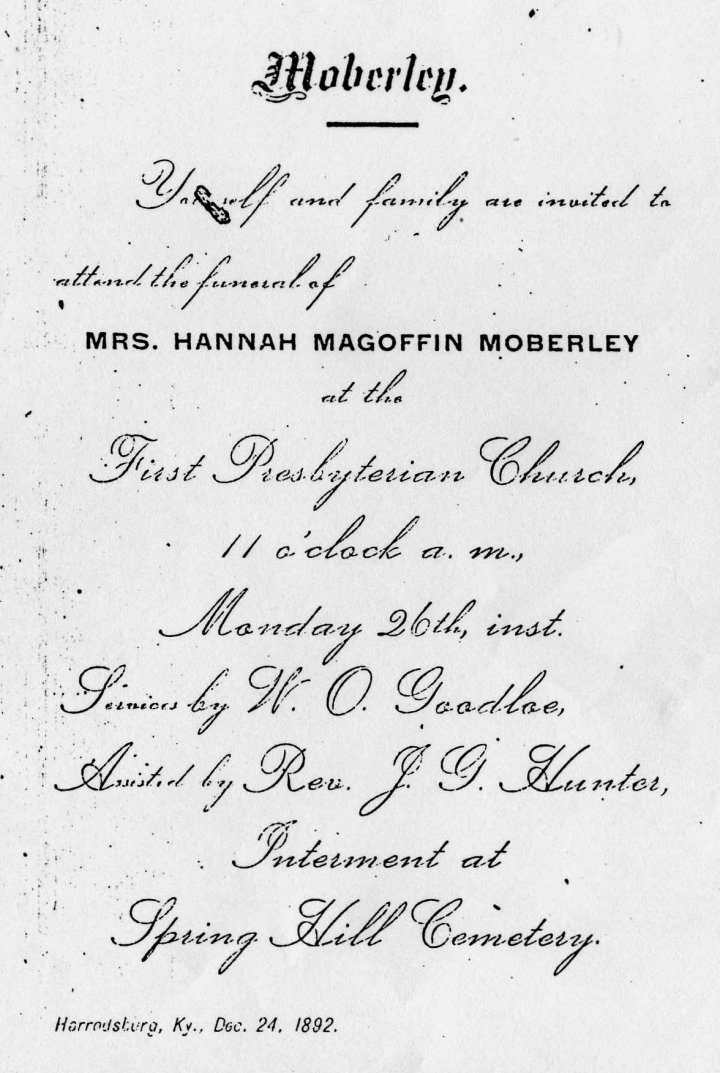 Moberley.
Yourself and family are invited to
attend the funeral of
MRS. HANNAH MAGOFFIN MOBERLEY
at the
First Presbyterian Church,
11 o'clock a. m.,
Monday 26th, inst.
Services by W. O. Goodloe,
Assisted by Rev. J. G. Hunter,
Interment at
Spring Hill Cemetery.
Harrodsburg, Ky., Dec. 24, 1892.